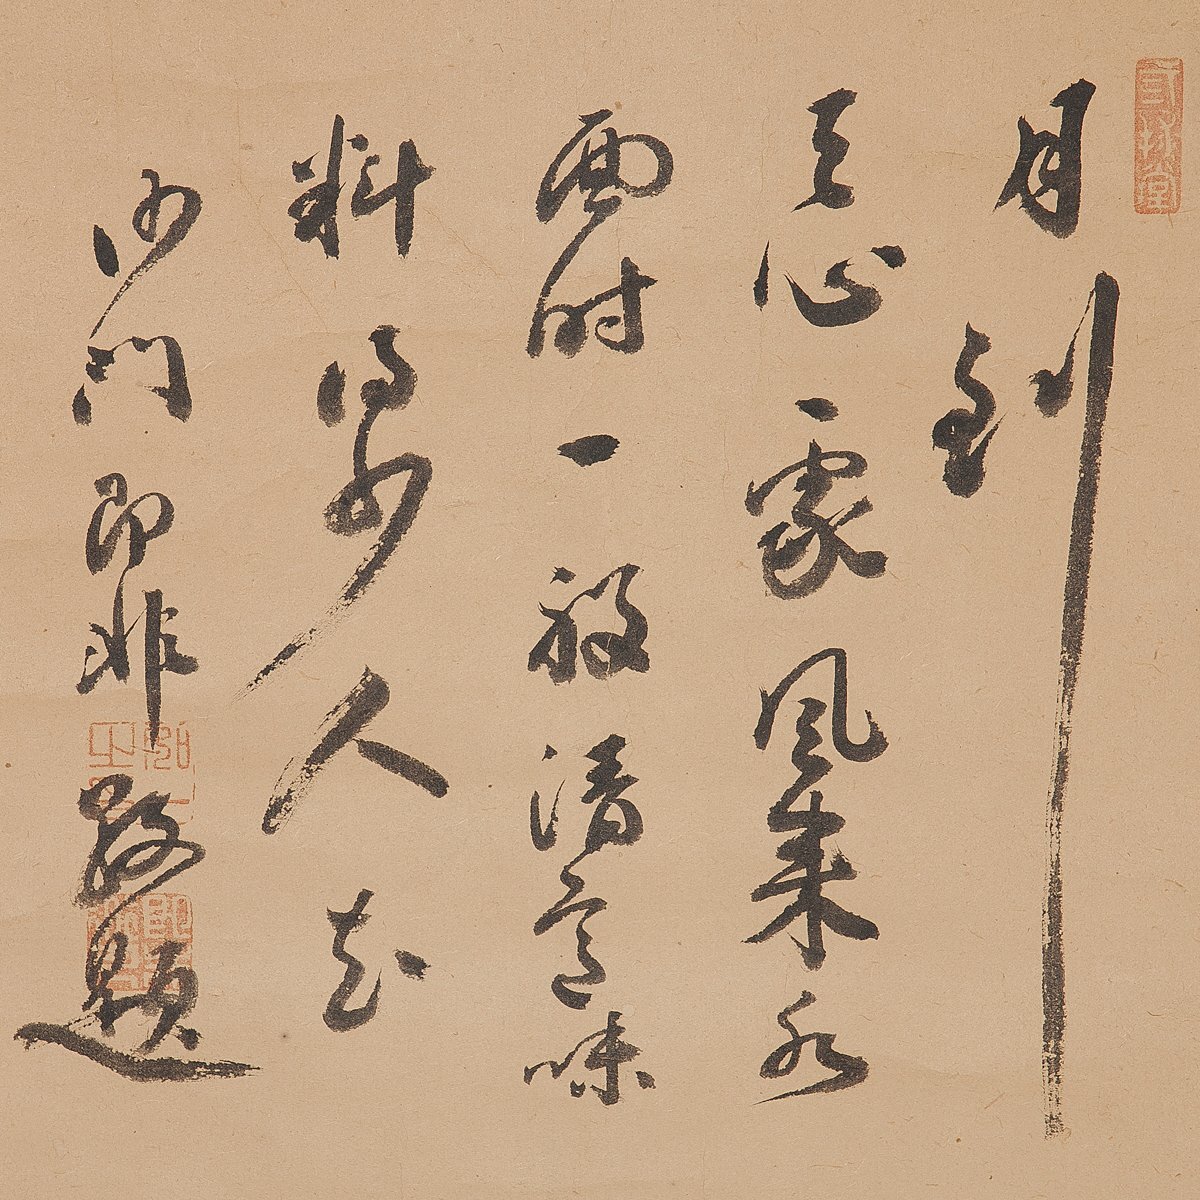 月到
天心處風來水
面時一般清意味
料得少人知
沙門即非敬題